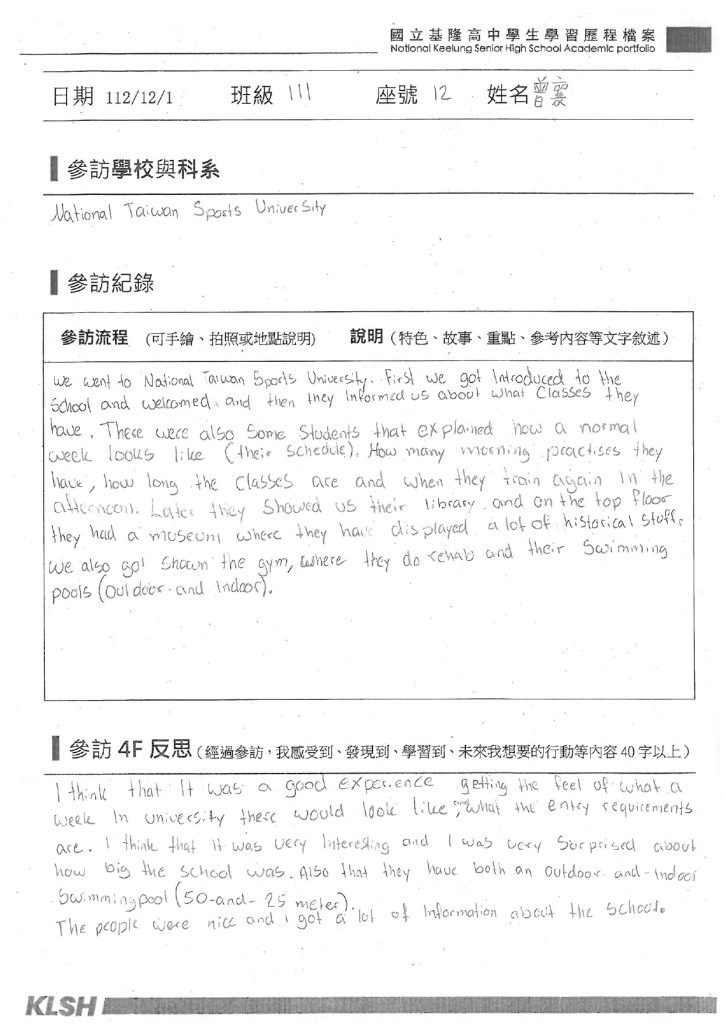 國立基隆高中學生學習歷程檔案
National Keelung Senior High School Academic portfolio
日期 112/12/1 班級 111 座號 12 姓名 曾
參訪學校與科系
National Taiwan Sports University
參訪紀錄
參訪流程 (可手繪、拍照或地點說明) 說明 (特色、故事、重點、參考內容等文字敘述)
We went to National Taiwan Sports University. First we got Introduced to the
School and welcomed. and then they Informed us about what Classes they
have. There were also Some Students that explained how a normal
week looks like (their Schedule). How many morning practises they
have, how long the Classes are and when they train again In the
afternoon. Later they Showed us their library and on the top floor
they had a museum where they have displayed a lot of historical Stuff.
We also got Shown the gym, where they do rehab and their Swimming
pools (Outdoor-and Indoor).
參訪 4F 反思 (經過參訪，我感受到、發現到、學習到、未來我想要的行動等內容 40 字以上)
I think that It was a good experience getting the feel of what a
week In university there would look like, what the entry requirements
are. I think that It was very Interesting and I was very Surprised about
how big the School was. Also that they have both an outdoor-and-Indoor
Swimmingpool (50-and-25 meter).
The people were nice and I got a lot of Information about the School.
KLSH